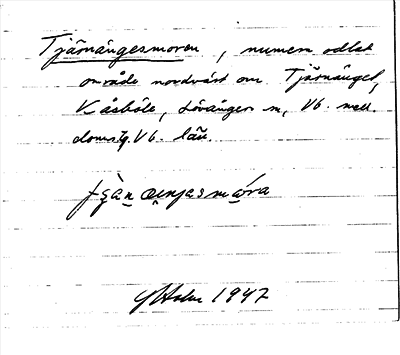 Tjärnängesmoren, numera odlat
område nordväst om Tjärnänget,
Kåsböle, Lövångers sn, Vb. mell.
domsg. Vb. län.
1947